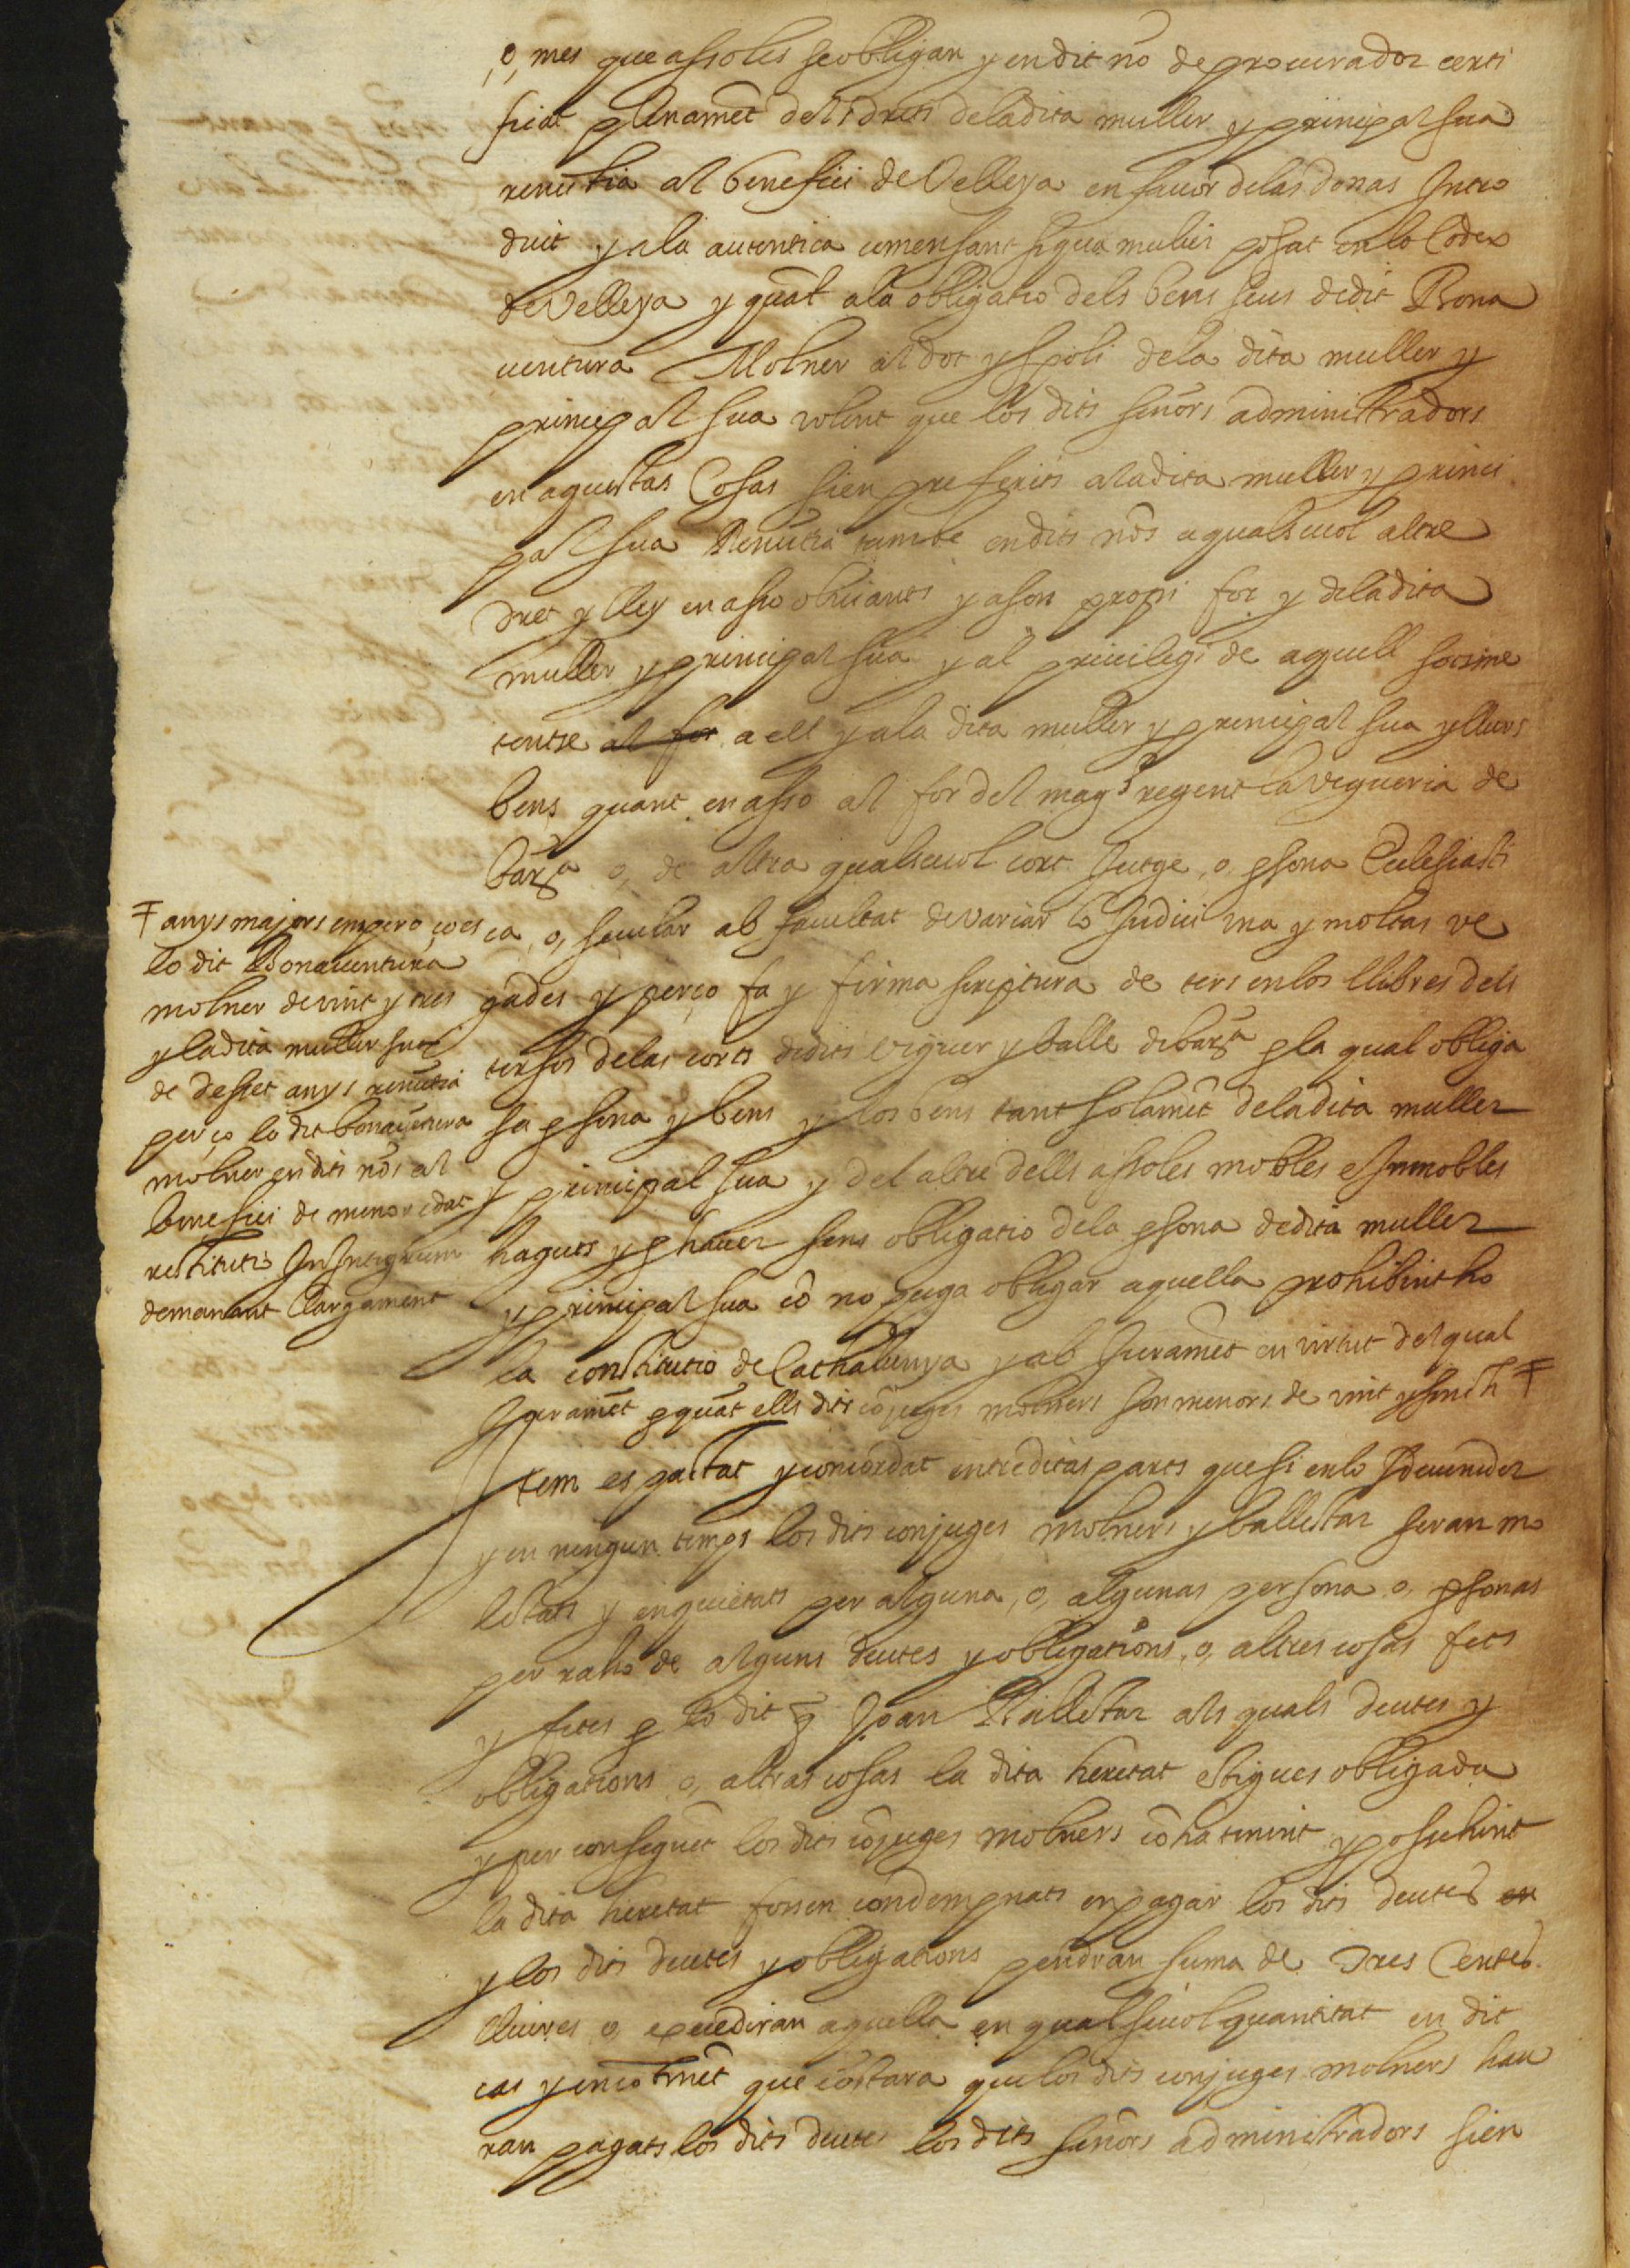 o, mes que assoles se obligan y en dit nõ de procurador certi
ficat plenamẽt dels drets dela dita muller y principal sua
renũtia al benefici de Velleya en favor delas donas Intro
duit y ala autentica comensant si qua mulier posat en lo Codex
de Velleya y quãt ala obligatio dels bens seus de dit Bona
ventura Molner al dot y spoli dela dita muller y
principal sua volent que los dits señors administradors
en aquestas Cosas sien preferits ala dita muller y princi
pal sua Renũtia tambe en dits nõs a qualsevol altre
dret y lley en asso obviants y a son propi for y dela dita
muller y principal sua y al privilegi de aquell sotsme
tentse al for a ell y ala dita muller y principal sua y llurs
bens quant en asso al for del magᶜʰ regent la vegueria de
barña o, de altra qualsevol cort Jutge, o, psona Eclesiasti
ca, o, secular ab facultat de variar lo Judici una y moltas ve
gades y perço fa y firma scriptura de ters en los llibres dels
tersos delas corts de dits veguer y balle de barña p la qual obliga
sa psona y bens y los bens tant solamẽt dela dita muller
y principal sua y del altre dells assoles mobles e Inmobles
haguts y p haver sens obligatio dela psona de dita muller
y principal sua cõ no puga obligar aquella prohibintho
la constitutio de Cathalunya y ab Juramẽt en virtut del qual
Juramẽt p quãt ells dits cõjuges molners son menors de vint y sinch ‡
‡ anys majors empero ço es
lo dit Bonaventura
molner de vint y tres
y la dita muller sua
de deset anys renũtia
perço lo dit bonaventura
molner en dits nõs al
benefici de menor edat y
restitutio In Integrum
demanant llargament
Item es pactat y concordat entre ditas parts que si en lo sdevenidor
y en ningun temps los dits conjuges molners y ballestar seran mo
lestats y inquietats per alguna, o, algunas persona o, psonas
per raho de alguns deutes y obligations, o, altres cosas fets
y fetes p lo dit q̃ Joan Ballestar als quals deutes y
obligations o, altras cosas la dita heretat estigues obligada
y per conseguẽt los dits cõjuges molners cõ ha tenint y possehint
la dita heretat fossen condempnats en pagar los dits deutes en
y los dits deutes y obligations pendran suma de Tres Centes
lliures o, excediran aquella en qualsevol quantitat en dit
cas y encõtinẽt que cõstara que los dits conjuges molners hau
ran pagats los dits deutes los dits señors administradors sien